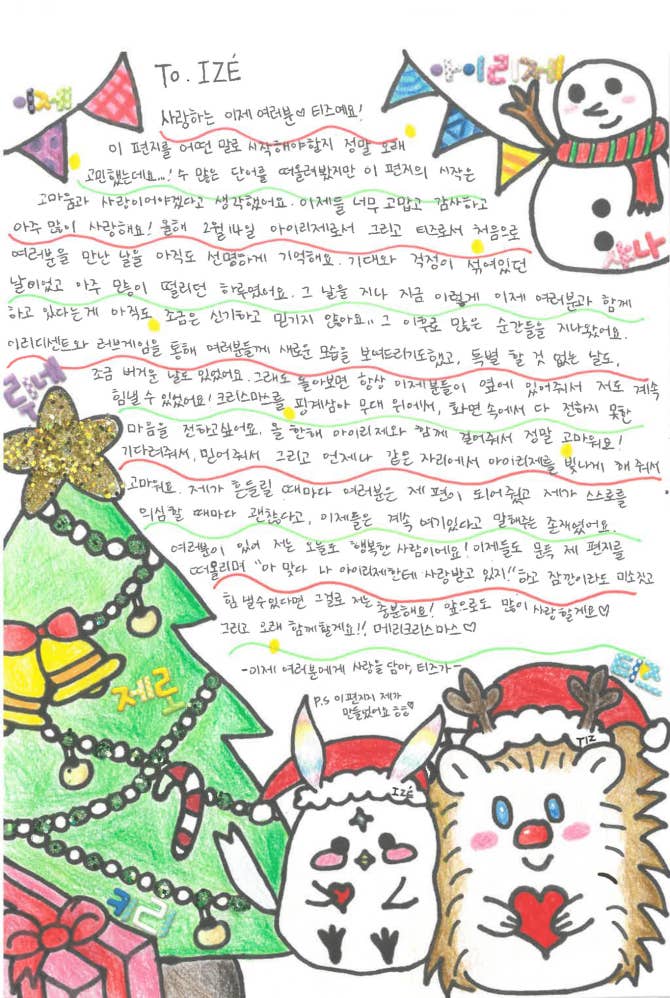 To. IZÉ
이제
아이리제
사랑하는 이제 여러분♡ 티즈예요!
이 편지를 어떤 말로 시작해야할지 정말 오래
고민했는데요...! 수 많은 단어를 떠올려봤지만 이 편지의 시작은
고마움과 사랑이어야겠다고 생각했어요. 이제들 너무 고맙고 감사하고
아주 많이 사랑해요! 올해 2월 14일 아이리제로서 그리고 티즈로서 처음으로
여러분을 만난 날을 아직도 선명하게 기억해요. 기대와 걱정이 섞여있던
날이었고 아주 많이 떨리던 하루였어요. 그 날을 지나 지금 이렇게 이제 여러분과 함께
하고 있다는게 아직도 조금은 신기하고 믿기지 않아요.. 그 이후로 많은 순간들을 지나왔어요.
이리디센트와 러브게임을 통해 여러분들께 새로운 모습을 보여드리기도했고, 특별 할 것 없는 날도,
조금 버거운 날도 있었어요. 그래도 돌아보면 항상 이제분들이 옆에 있어줘서 저도 계속
힘낼 수 있었어요! 크리스마스를 핑계삼아 무대 위에서, 화면 속에서 다 전하지 못한
마음을 전하고싶어요. 올 한해 아이리제와 함께 걸어줘서 정말 고마워요!
기다려줘서, 믿어줘서 그리고 언제나 같은 자리에서 아이리제를 빛나게 해 줘서
고마워요. 제가 흔들릴 때마다 여러분은 제 편이 되어줬고 제가 스스로를
의심할 때마다 괜찮다고, 이제들은 계속 여기있다고 말해주는 존재였어요.
여러분이 있어 저는 오늘도 행복한 사람이에요! 이제들도 문득 제 편지를
떠올리며 "아 맞다 나 아이리제한테 사랑받고 있지!" 하고 잠깐이라도 미소짓고
힘 낼수있다면 그걸로 저는 충분해요! 앞으로도 많이 사랑할게요♡
그리고 오래 함께할게요!! 메리크리스마스♡
-이제 여러분에게 사랑을 담아, 티즈가-
P.S 이편지지 제가
만들었어요 흐흐
샤나
루네
티즈
제로
키리
IZÉ
TIZ